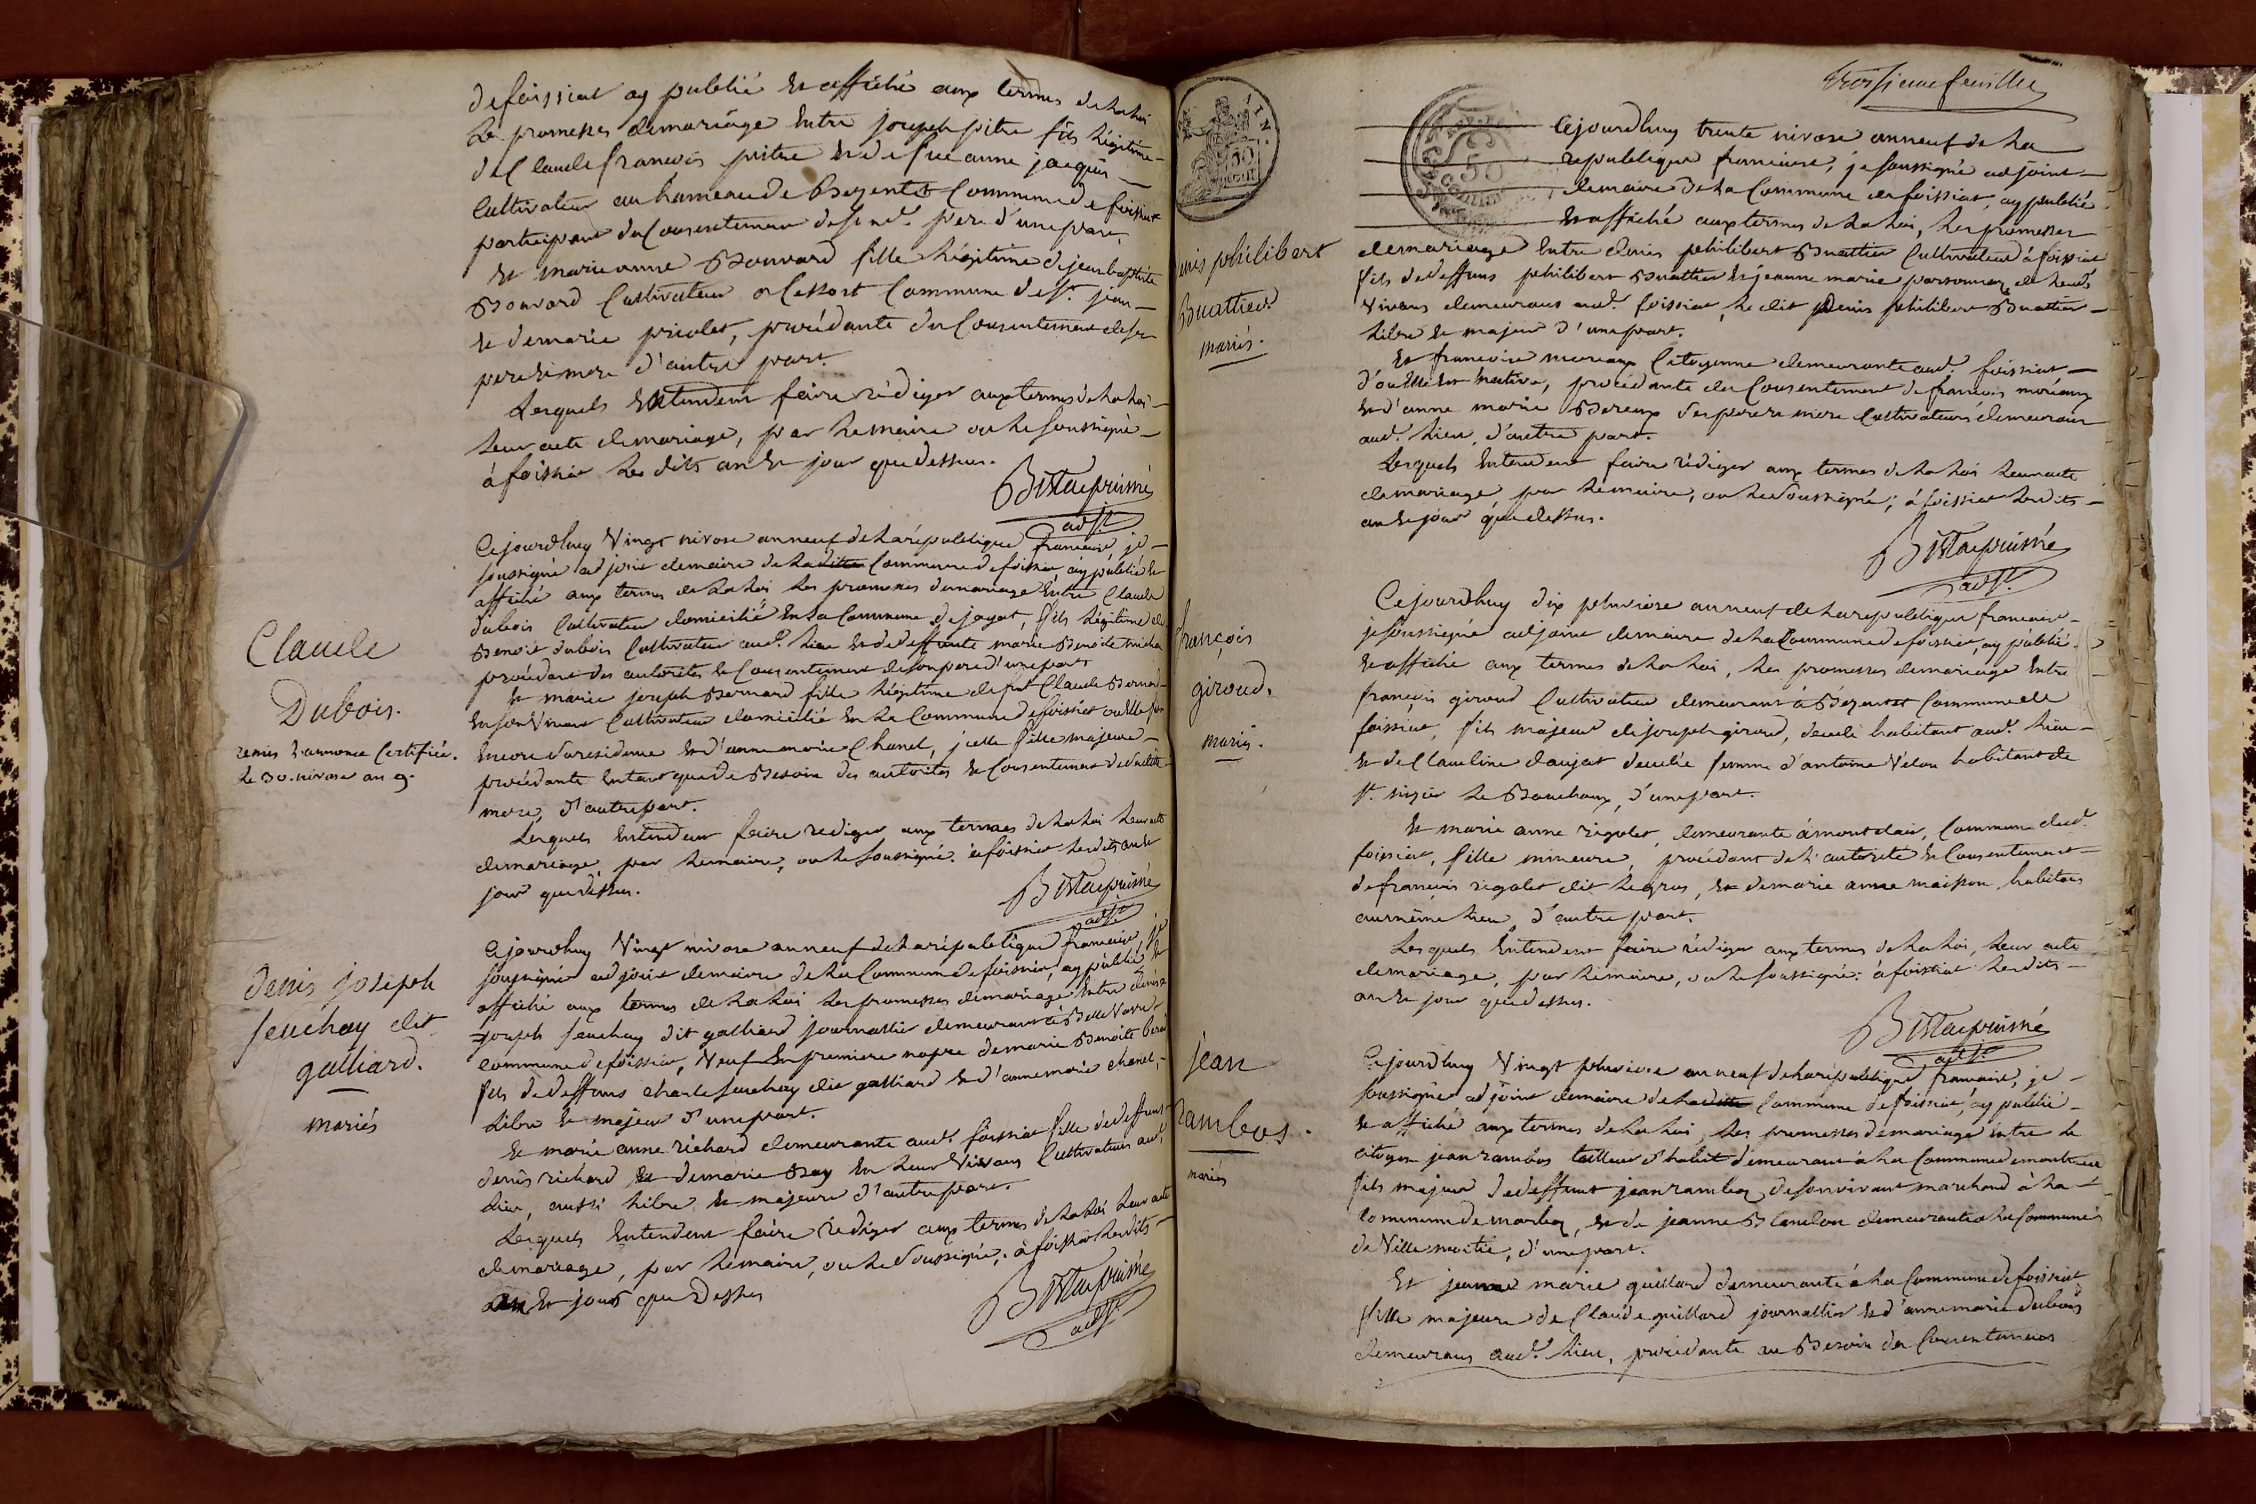 defoissiat ay publié et affiché aux termes de la loi
les promesses de mariage entre joseph pitre fils légitime
de Claude francois pitre et de feue anne jacquin
Cultivateur au hameau de Bezentet Commune de foissiat
participant du Consentement de sond. pere d'une part,
et marie anne Bouvard fille légitime de jean baptiste
Bouvard Cultivateur a Lessort Commune de St. jean
et de marie picolet, procédante du Consentement de ses
pere et mere d'autre part.
Lesquels entendent faire rédiger aux termes de la loi
leur acte de mariage, par le maire ou le soussigné
à foissiat les dits an et jour que dessus.
adjt.
Claude
Dubois.
remis l'annonce Certifiée.
le 30. nivose an 9.
Cejourdhuy Vingt nivose an neuf de la république francaise je
soussigné adjoint de maire de la Commune de foissiat ay publié et
affiché aux termes de la loi les promesses de mariage entre Claude
dubois Cultivateur domicilié en la Commune de jayat, fils légitime de
Benoit dubois Cultivateur aud. lieu et de deffunte marie Benoite michon
procédant des autorités et Consentement de son pere d'une part
et marie joseph Bernard fille légitime de feu Claude Bernard
en son Vivant Cultivateur domicilié en la Commune de foissiat ou elle fait
encore sa residence et d'anne marie Chanel, icelle fille majeure
procédante entant que de Besoin des autorités et Consentement de sadite
mere, d'autre part.
Lesquels entendent faire rediger aux termes de la loi leur acte
de mariage, par le maire, ou le soussigné. à foissiat les dits an et
jour que dessus.
adjt.
denis joseph
feuchay dit
galliard.
mariés
Cejourdhuy Vingt nivose an neuf de la république francaise, je
soussigné adjoint de maire de la Commune de foissiat, ay publié et
affiché aux termes de la loi les promesses de mariage entre denis
joseph feuchay dit galliard journallier demeurant à Belle Vavret
commune de foissiat, Veuf en premiere nopce de marie Benoite
fils de deffunts charle feuchay dit galliard et d'anne marie chanel,
libre et majeur d'une part.
et marie anne richard demeurante aud. foissiat fille de deffunts
denis richard et de marie Bay en leur Vivans Cultivateurs aud.
lieu, aussi libre et majeure d'autre part.
Lesquels entendent faire rediger aux termes de la loi leur acte
de mariage, par le maire, ou le soussigné; à foissiat les dits
an et jour que dessus
adjt.
troissieme feuillet
denis philibert
Buattier
mariés.
Cejourdhuy trente nivose an neuf de la
republique francaise, je soussigné adjoint
de maire de la Commune de foissiat, ay publié
et affiché aux termes de la loi, les promesses
de mariage entre denis philibert Buattier Cultivateur à foissiat
fils de deffuns philibert Buattier et jeanne marie parsonnay de leurs
Vivans demeurans aud. foissiat, le dit denis philibert Buattier
libre et majeur d'une part.
et francoise moreaux Citoyenne demeurante aud. foissiat
d'ou elle est native, procédante du Consentement de francois moreaux
et d'anne marie Bereux ses pere et mere Cultivateurs demeurans
aud. lieu, d'autre part.
Lesquels entendent faire rédiger aux termes de la loi leur acte
de mariage par le maire, ou le soussigné; à foissiat les dits
an et jour que dessus.
adjt.
françois
giroud,
mariés.
Cejourdhuy dix pluviose an neuf de la republique francaise
je soussigné adjoint de maire de la Commune de foissiat, ay publié
et affiché aux termes de la loi, les promesses de mariage entre
françois giroud Cultivateur demeurant à Bezentet Commune de
foissiat, fils majeur de joseph giroud, décédé habitant aud. lieu
et de Claudine daujat décédée femme d'antoine Velon habitant de
St. nizier le Bouchoux, d'une part.
et marie anne rigolet, demeurante à montclair, Commune dud.
foissiat, fille mineure, procédant de l'autorité et Consentement
de francois rigolet dit legros, et de marie anne maisson, habitans
au même lieu, d'autre part.
Lesquels entendent faire rédiger aux termes de la loi, leur acte
de mariage, par le maire, ou le soussigné: à foissiat les dits
an et jour que dessus.
adjt.
jean
rambos.
mariés
Cejourdhuy Vingt pluviose an neuf de la république francaise, je
soussigné adjoint de maire de la Commune de foissiat, ay publié
et affiché aux termes de la loi, les promesses de mariage entre le
citoyen jean rambos tailleur d'habit demeurant à la Commune de
fils majeur de deffunt jean rambos, de son vivant marchand à la
commune de marboz, et de jeanne Blandon demeurante à la Commune
de Villemotie, d'une part.
Et jeanne marie guillard demeurante à la Commune de foissiat
fille majeure de Claude guillard journallier et d'anne marie dubois
demeurans aud. lieu, procédante au Besoin des Consentemens